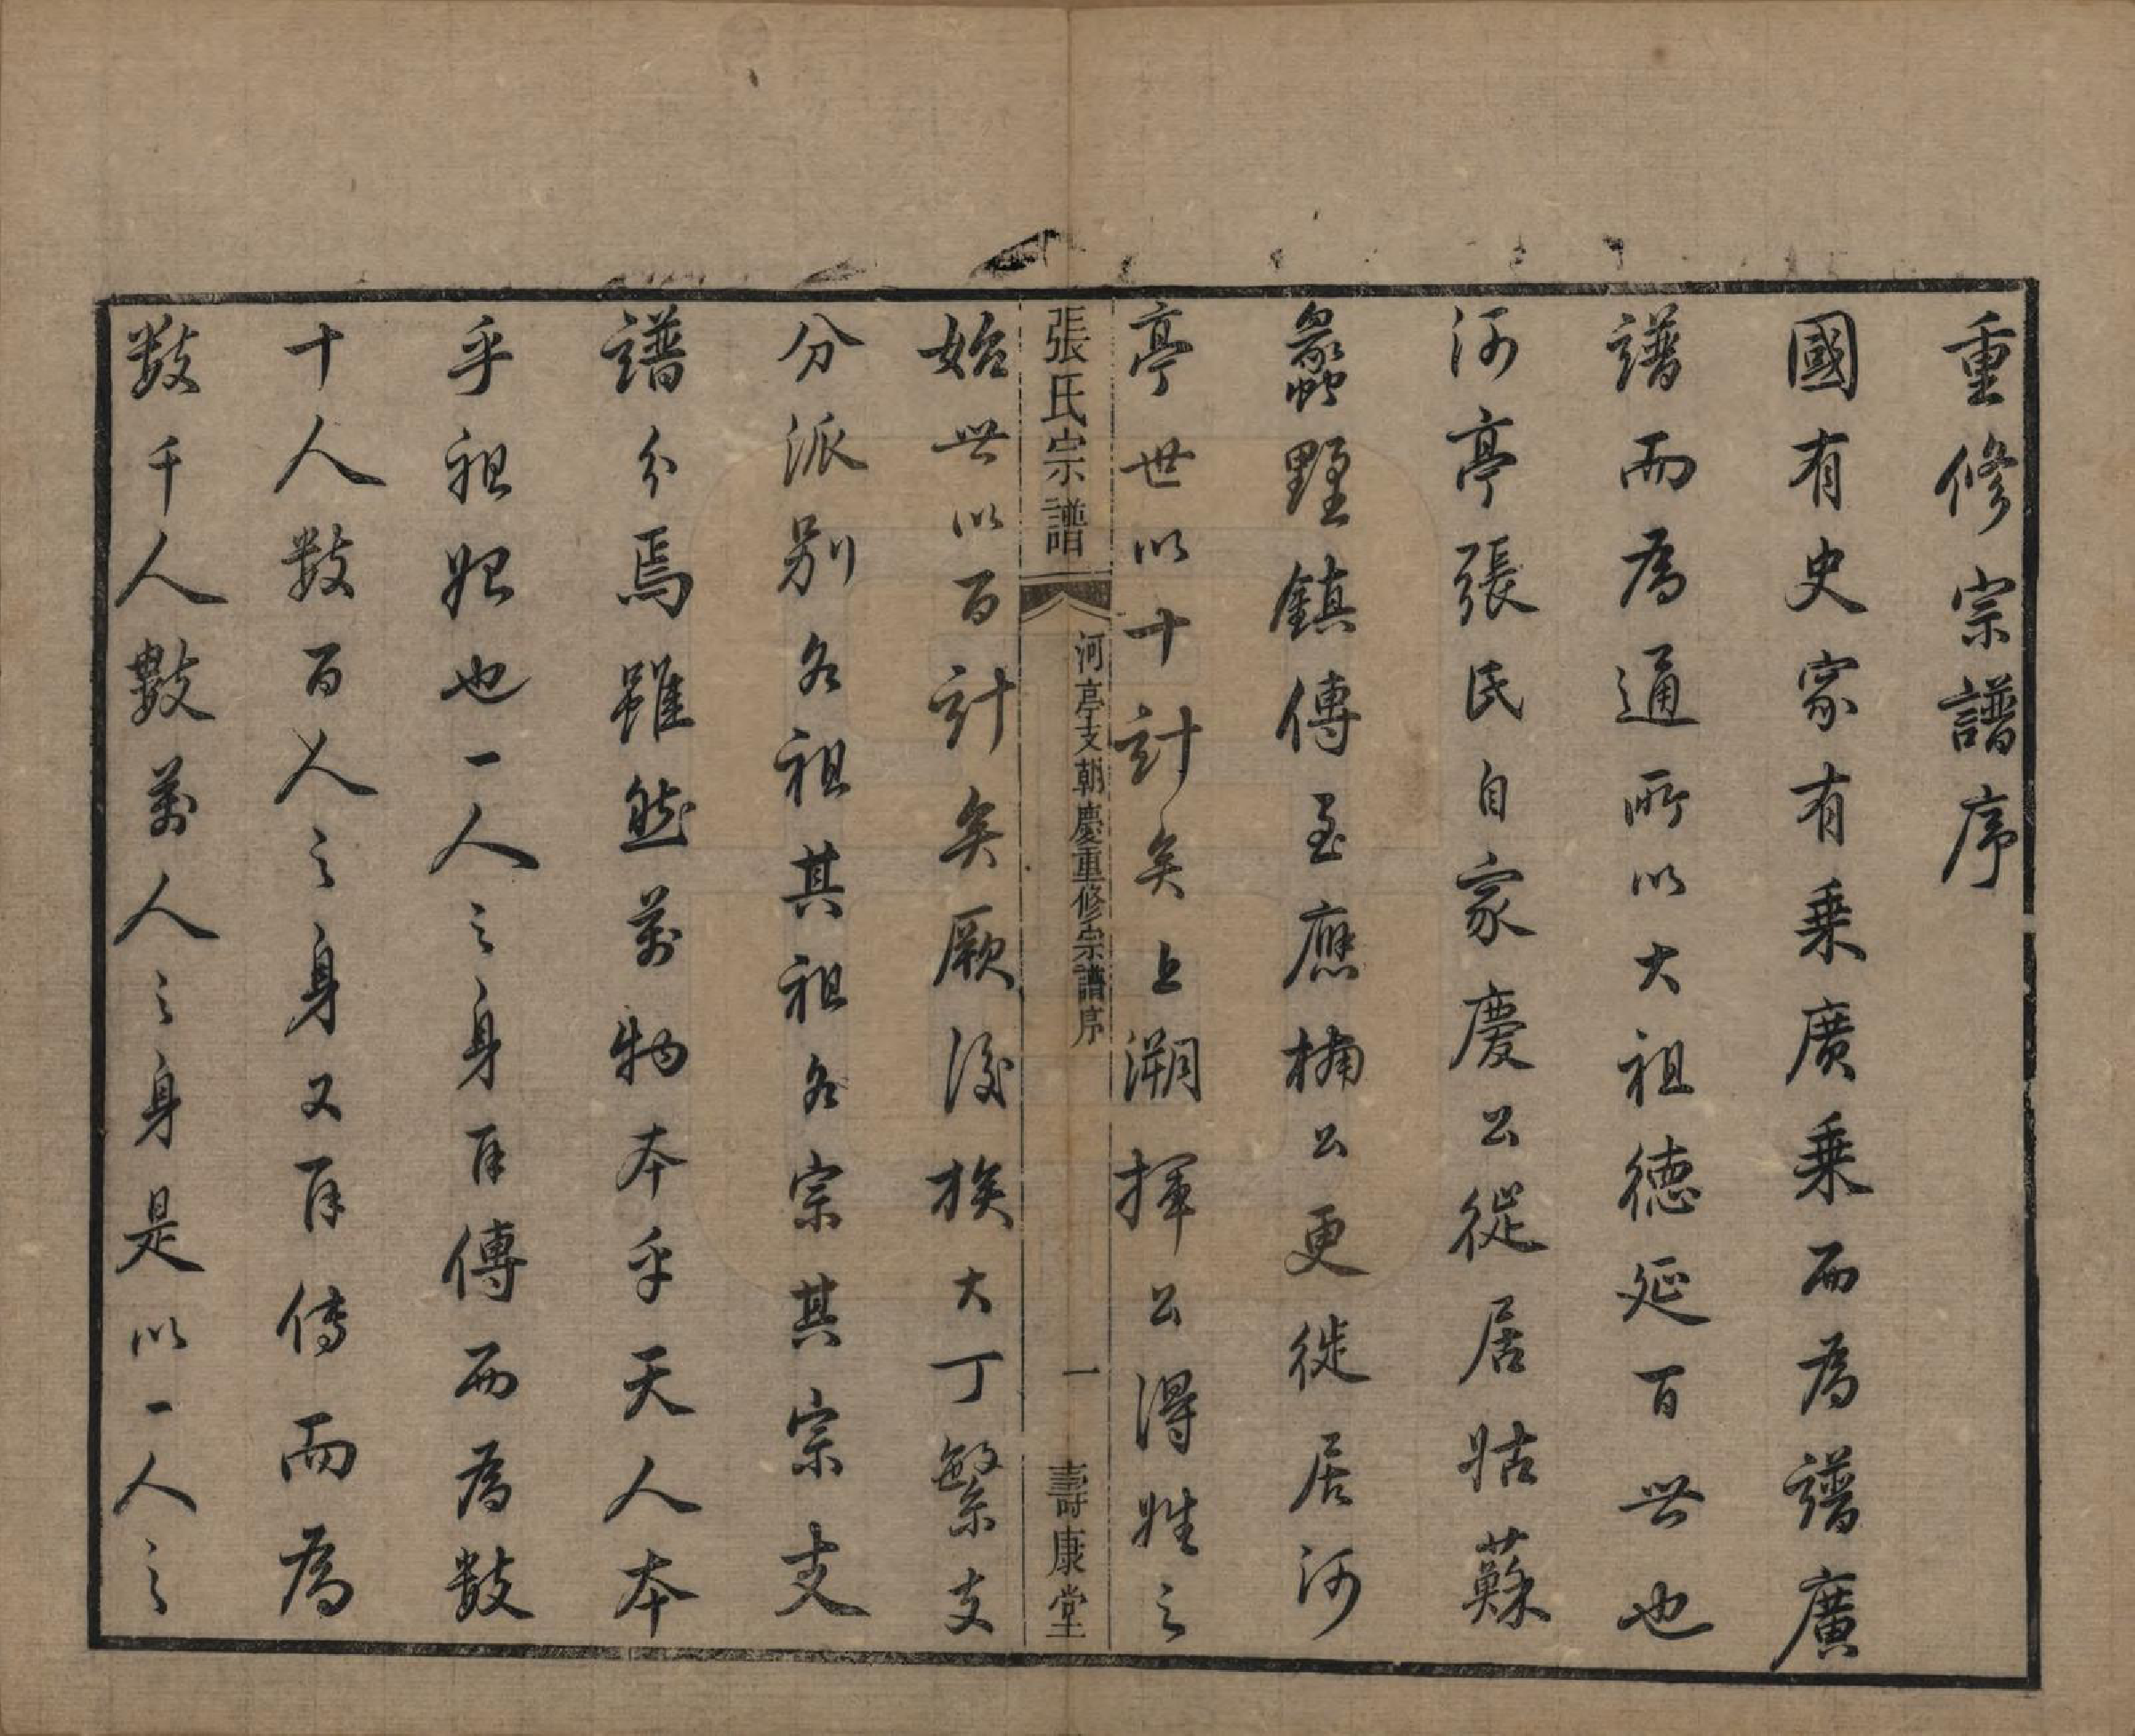 重修宗譜序
國有史家有乗廣乗而為譜廣
譜而為通所以大祖德延百世也
河亭張氏自家慶公從居姑蘇
蠡野鎮傳至應楠公更徙居河
亭世以十計矣上溯揮公得姓之
張氏宗譜
河亭支朝慶重修宗譜序
一
壽康堂
始世以百計矣厥後族大丁繁支
分派别各祖其祖各宗其宗支
譜分焉雖然萬物本乎天人本
乎祖妣也一人之身再傳而為數
十人數百人之身又再傳而為
數千人數萬人之身是以一人之